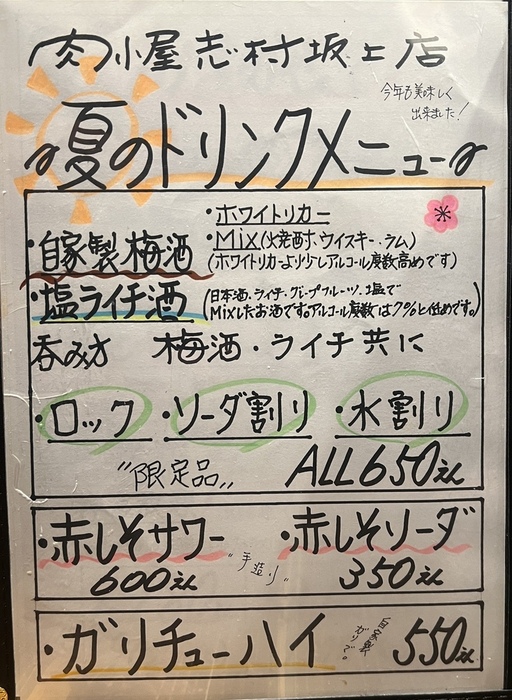 肉小屋志村坂上店
今年も美味しく
出来ました!
夏のドリンクメニュー
・ホワイトリカー
・自家製梅酒 ・Mix(焼酎、ウイスキー、ラム)
(ホワイトリカーより少しアルコール度数高めです)
・塩ライチ酒 (日本酒、ライチ、グレープフルーツ、塩で
Mixしたお酒です。アルコール度数は7%と低めです。)
呑み方 梅酒・ライチ共に
・ロック ・ソーダ割り ・水割り
"限定品" ALL650えん
・赤しそサワー ・赤しそソーダ
"手造り"
600えん 350えん
・ガリチューハイ 自家製ガリで。 550えん